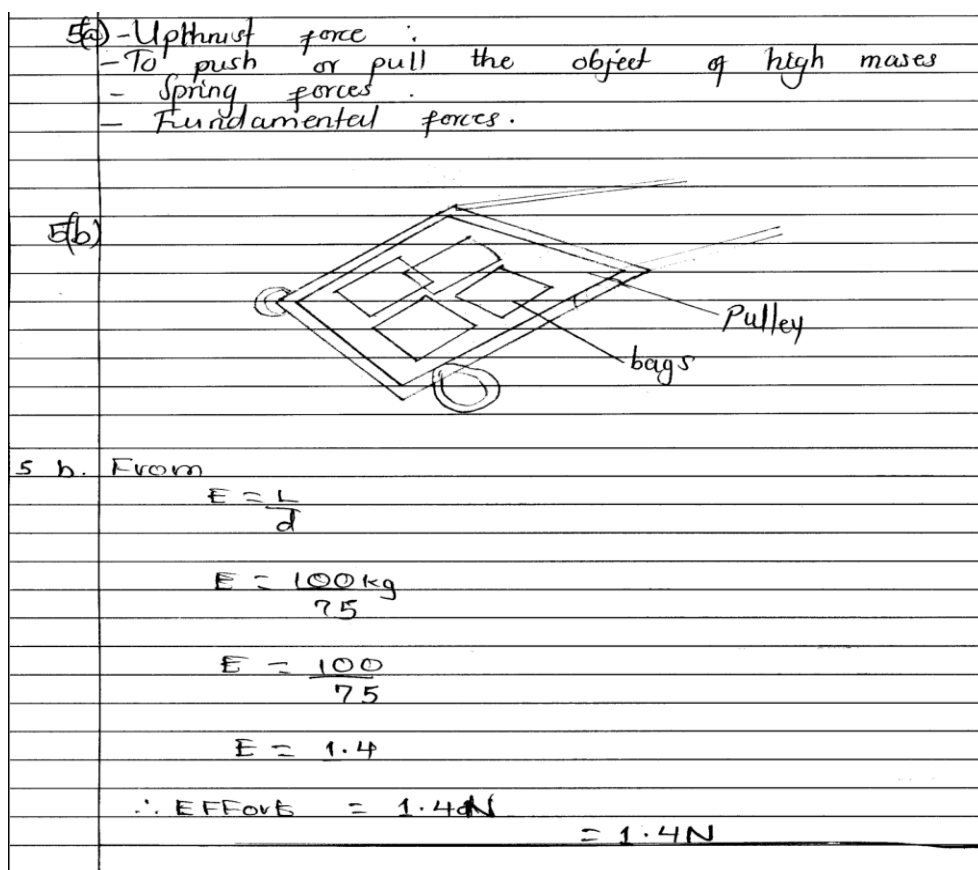 5(a) - Upthrust force :
- To push or pull the object of high mases
- Spring forces .
- Fundamental forces.
5(b)
Pulley
bags
5 b. From
E = L
d
E = 100kg
75
E = 100
75
E = 1.4
∴ EFFort = 1.4N
= 1.4N